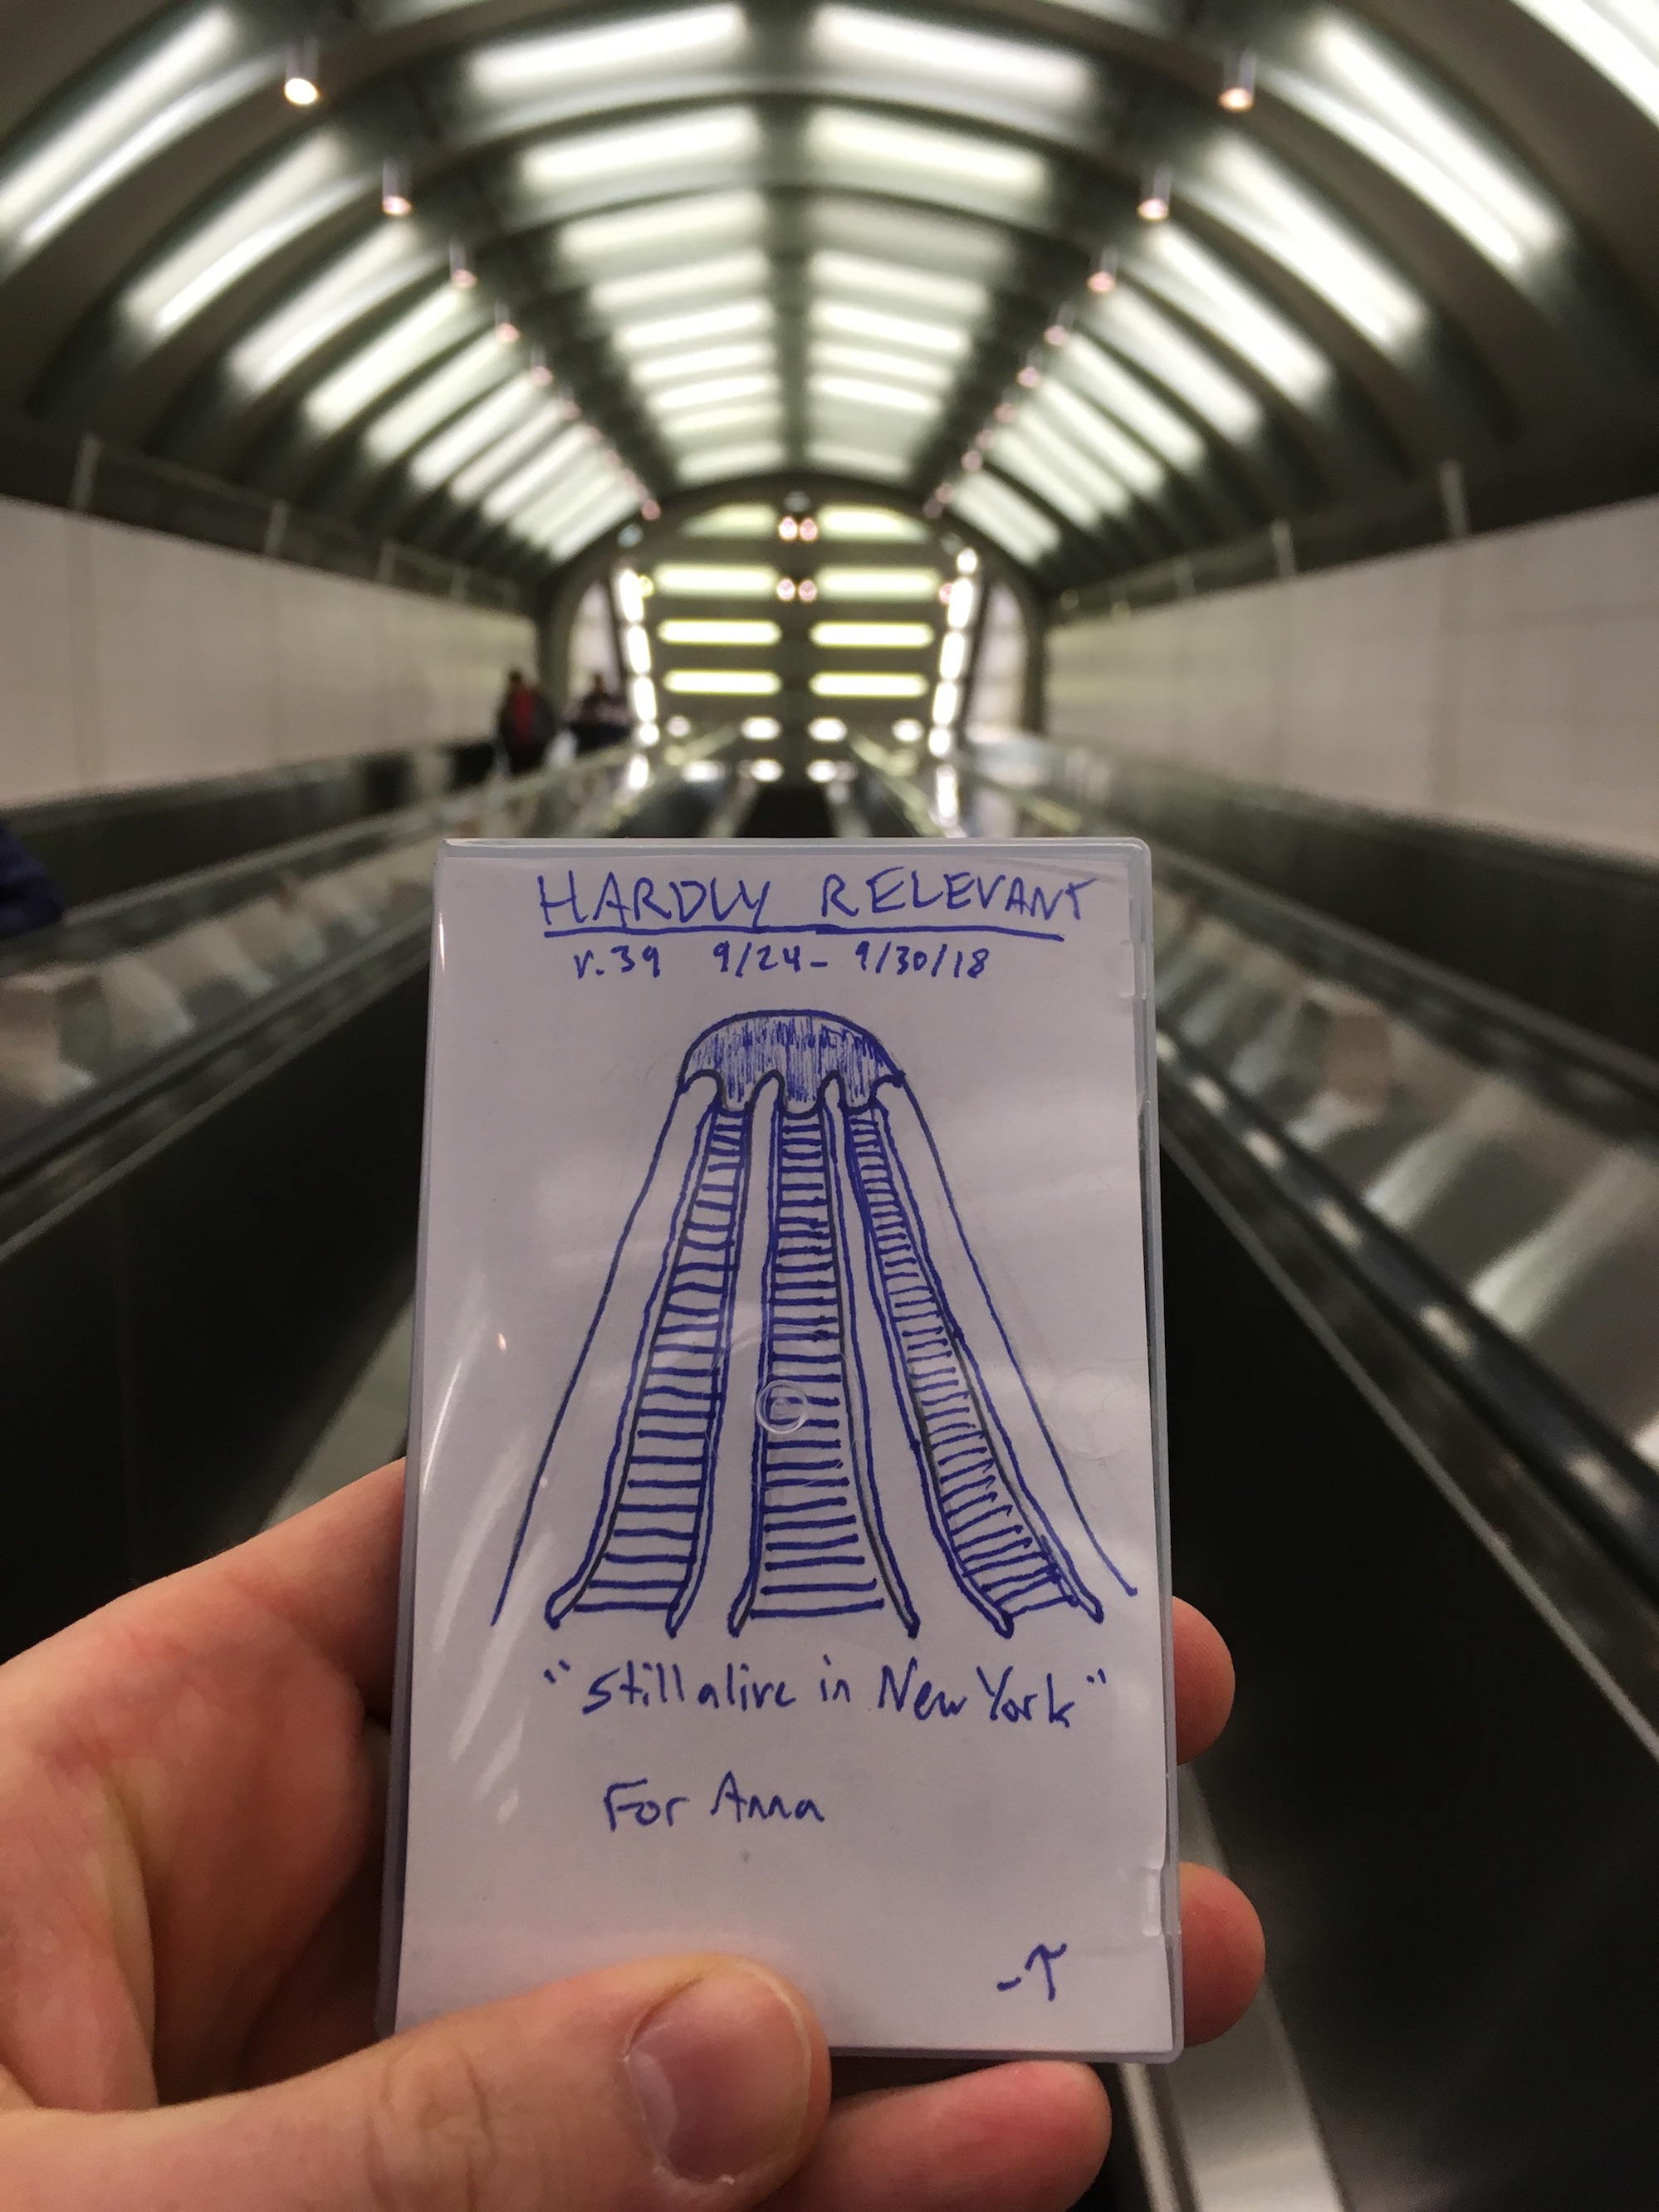 HARDLY RELEVANT
v.39 9/24- 9/30/18
"still alive in New York"
For Anna
-T